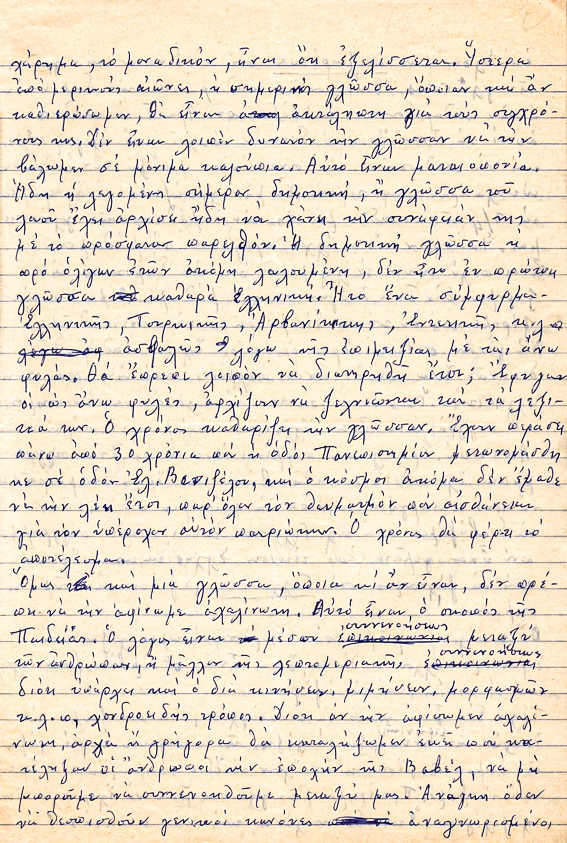 χάρισμα, τὸ μοναδικόν, εἶναι ὅτι ἐξελίσσεται. Ὕστερα
ἀπὸ μερικοὺς αἰῶνες, ἡ σημερινὴ γλῶσσα, ὁποίαν καὶ ἂν
καθιερώσωμεν, θὰ εἶναι ἀκατάληπτη γιὰ τοὺς συγχρό-
νους της. Δὲν εἶναι λοιπὸν δυνατὸν τὴν γλῶσσαν νὰ τὴν
βάλωμεν σὲ μόνιμα καλούπια. Αὐτὸ εἶναι ματαιοπονία.
Ἤδη ἡ λεγομένη σήμερον δημοτική, ἡ γλῶσσα τοῦ
λαοῦ ἔχει ἀρχίσει ἤδη νὰ χάνει τὴν συνάφειάν της
μὲ τὸ πρόσφατον παρελθόν. Ἡ δημοτικὴ γλῶσσα ἡ
πρὸ ὀλίγων ἐτῶν ἀκόμη λαλουμένη, δὲν ἦτο ἐν πρώτοις
γλῶσσα καθαρὰ Ἑλληνική. Ἦτο ἕνα σύμφυρμα
Ἑλληνικῆς, Τουρκικῆς, Ἀρβανίτικης, Ἐνετικῆς κ.λ.π
ἀσφαλῶς λόγω τῆς ἐπιμειξίας μὲ τὰς ἄνω
φυλάς. Θὰ ἔπρεπε λοιπὸν νὰ διατηρηθῆ ἔτσι; Ἔφυγαν
οἱ ὡς ἄνω φυλές, ἀρχίζουν νὰ ξεχνιῶνται καὶ τὰ λεξι-
κά των. Ὁ χρόνος καθαρίζει τὴν γλῶσσαν. Ἔχουν περάσει
πάνω ἀπὸ 30 χρόνια ποὺ ἡ ὁδὸς Πανεπιστημίου μετωνομάσθη
κε σὲ ὁδὸν Ἐλ. Βενιζέλου, καὶ ὁ κόσμος ἀκόμα δὲν ἔμαθε
νὰ τὴν λέει ἔτσι, παρ' ὅλον τὸν θαυμασμὸν ποὺ αἰσθάνεται
γιὰ τὸν ὑπέροχον αὐτὸν πατριώτην. Ὁ χρόνος θὰ φέρει τὸ
ἀποτέλεσμα.
Ὅμως καὶ μιὰ γλῶσσα, ὁποία κι' ἂν εἶναι, δὲν πρέ-
πει νὰ τὴν ἀφίνωμε ἀχαλίνωτη. Αὐτὸ εἶναι ὁ σκοπὸς τῆς
Παιδείας. Ὁ λόγος εἶναι μέσον συνεννοήσεως μεταξὺ
τῶν ἀνθρώπων, ἢ μᾶλλον τῆς λεπτομεριακῆς συνεννοήσεως
διότι ὑπάρχει καὶ ὁ διὰ κινήσεων, μιμήσεων, μορφασμῶν
κ.λ.π. χονδροειδὴς τρόπος. Διότι ἂν τὴν ἀφίσωμεν ἀχαλί-
νωτη, ἀργὰ ἢ γρήγορα θὰ καταλήξωμεν ἐκεῖ ποὺ κα-
τέληξαν οἱ ἄνθρωποι τὴν ἐποχὴν τῆς Βαβέλ, νὰ μὴ
μποροῦμε νὰ συνεννοηθοῦμε μεταξύ μας. Ἀνάγκη ὅθεν
νὰ θεσπισθοῦν γενικοὶ κανόνες ἀναγνωρισμένοι,